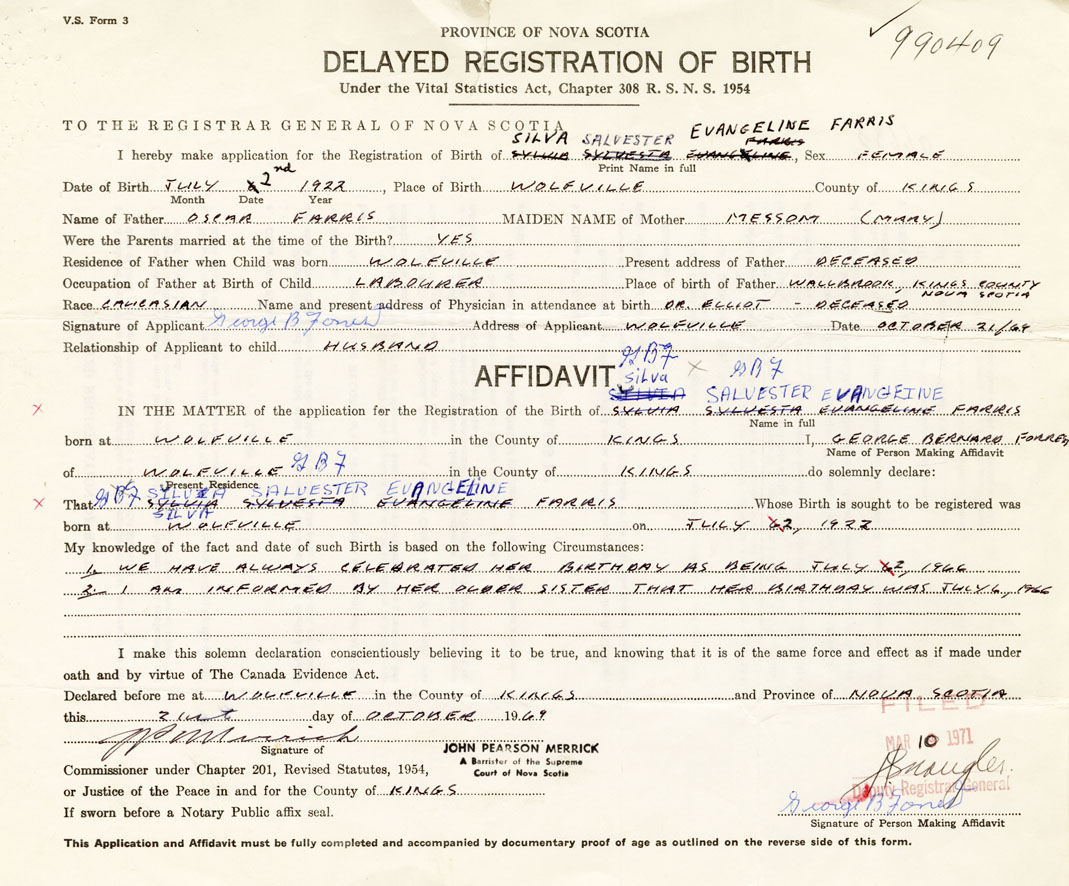 V.S. Form 3
990409
PROVINCE OF NOVA SCOTIA
DELAYED REGISTRATION OF BIRTH
Under the Vital Statistics Act, Chapter 308 R. S. N. S. 1954
TO THE REGISTRAR GENERAL OF NOVA SCOTIA
SILVA SALVESTER EVANGELINE FARRIS
FARRIS
I hereby make application for the Registration of Birth of SYLVIA SYLVESTA EVANGELINE, Sex FEMALE
Print Name in full
Date of Birth JULY 2nd 1922, Place of Birth WOLFVILLE County of KINGS
Month Date Year
Name of Father OSCAR FARRIS MAIDEN NAME of Mother MESSOM (MARY)
Were the Parents married at the time of the Birth? YES
Residence of Father when Child was born WOLFVILLE Present address of Father DECEASED
Occupation of Father at Birth of Child LABOURER Place of birth of Father WALLBROOK, KINGS COUNTY
NOVA SCOTIA
Race CAUCASIAN Name and present address of Physician in attendance at birth DR. ELLIOT - DECEASED
Signature of Applicant George B Address of Applicant WOLFVILLE Date OCTOBER 21/69
Relationship of Applicant to child HUSBAND
GBF
AFFIDAVIT
silva × GBF
SYLVIA SALVESTER EVANGEINE
× IN THE MATTER of the application for the Registration of the Birth of SYLVIA SYLVESTA EVANGELINE FARRIS
Name in full
born at WOLFVILLE in the County of KINGS I, GEORGE BERNARD
Name of Person Making Affidavit
of WOLFVILLE GBF in the County of KINGS do solemnly declare:
Present Residence
GBF SALVESTER EVANGELINE
× That SYLVIA SYLVESTA EVANGELINE FARRIS Whose Birth is sought to be registered was
SILVA
born at WOLFVILLE on JULY 2, 1922
My knowledge of the fact and date of such Birth is based on the following Circumstances:
1. WE HAVE ALWAYS CELEBRATED HER BIRTHDAY AS BEING JULY 2, 1966
2. I AM INFORMED BY HER OLDER SISTER THAT HER BIRTHDAY WAS JULY 6, 1966
I make this solemn declaration conscientiously believing it to be true, and knowing that it is of the same force and effect as if made under
oath and by virtue of The Canada Evidence Act.
Declared before me at WOLFVILLE in the County of KINGS and Province of NOVA SCOTIA
FILED
this 21st day of OCTOBER 1969
MAR 10 1971
Signature of
JOHN PEARSON MERRICK
A Barrister of the Supreme
Court of Nova Scotia
Commissioner under Chapter 201, Revised Statutes, 1954,
Deputy Registrar General
or Justice of the Peace in and for the County of KINGS
George B
If sworn before a Notary Public affix seal.
Signature of Person Making Affidavit
This Application and Affidavit must be fully completed and accompanied by documentary proof of age as outlined on the reverse side of this form.